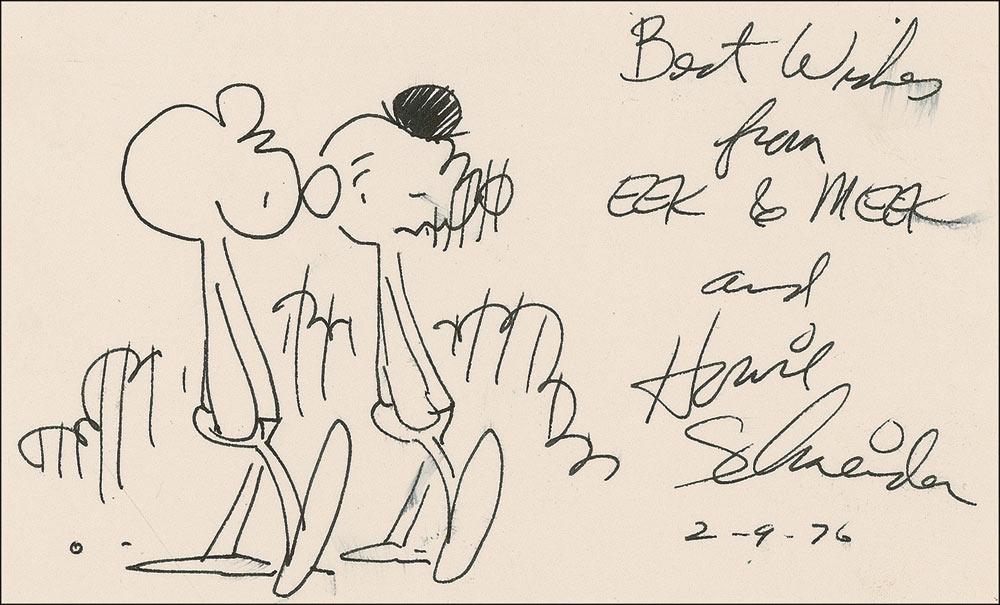 Best Wishes
from
EEK & MEEK
and
Howie
Schneider
2-9-76